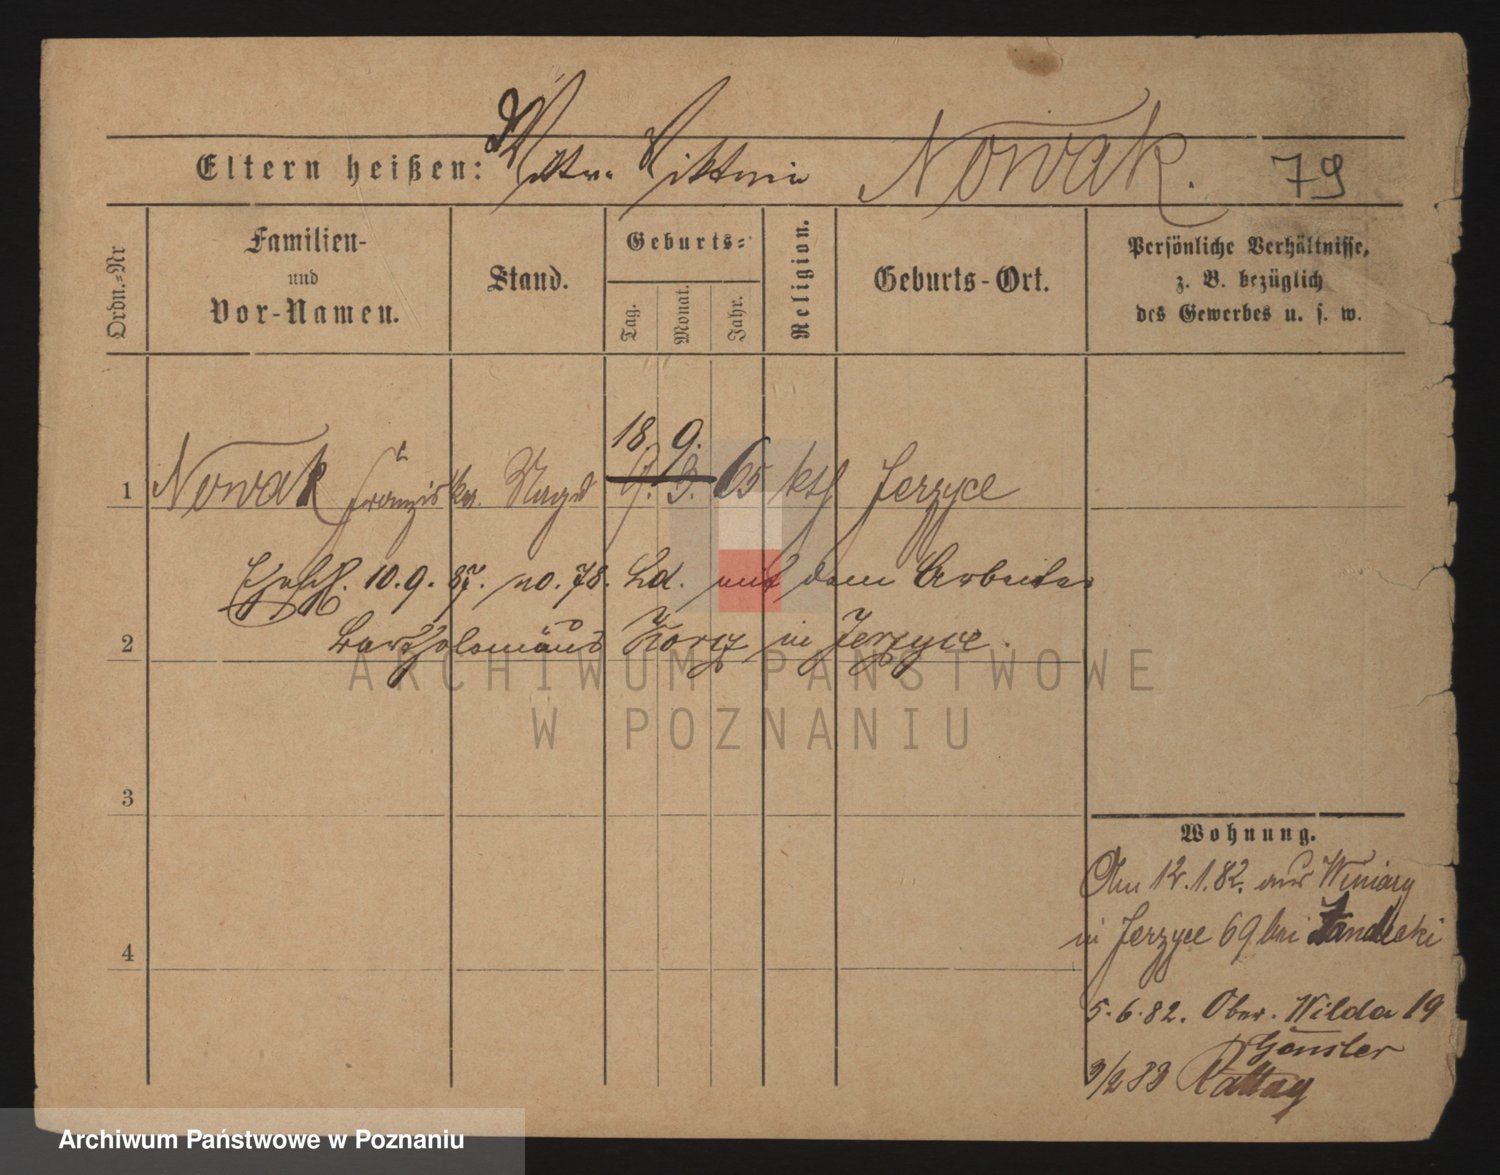 Eltern heißen: Viktoria Nowak. 79
Ordn.-Nr
Familien-
und
Vor-Namen.
Stand.
Geburts-:
Tag.
Monat.
Jahr.
Religion.
Geburts-Ort.
Persönliche Verhältnisse,
z. B. bezüglich
des Gewerbes u. s. w.
18. 9.
1 Nowak Franziska. Magd 9. 3. 65 kth Jerzyce
Eheschl. 10.9.87. no. 78. Ld. mit dem Arbeiter
2 Bartholomäus in Jerzyce.
ARCHIWUM PAŃSTWOWE
W POZNANIU
3
4
Wohnung.
Am 12.1.82. aus Winiary
in Jerzyce 69 bei
5.6.82. Ober. Wilda 19
Gensler
3/2 83 Rattay
Archiwum Państwowe w Poznaniu